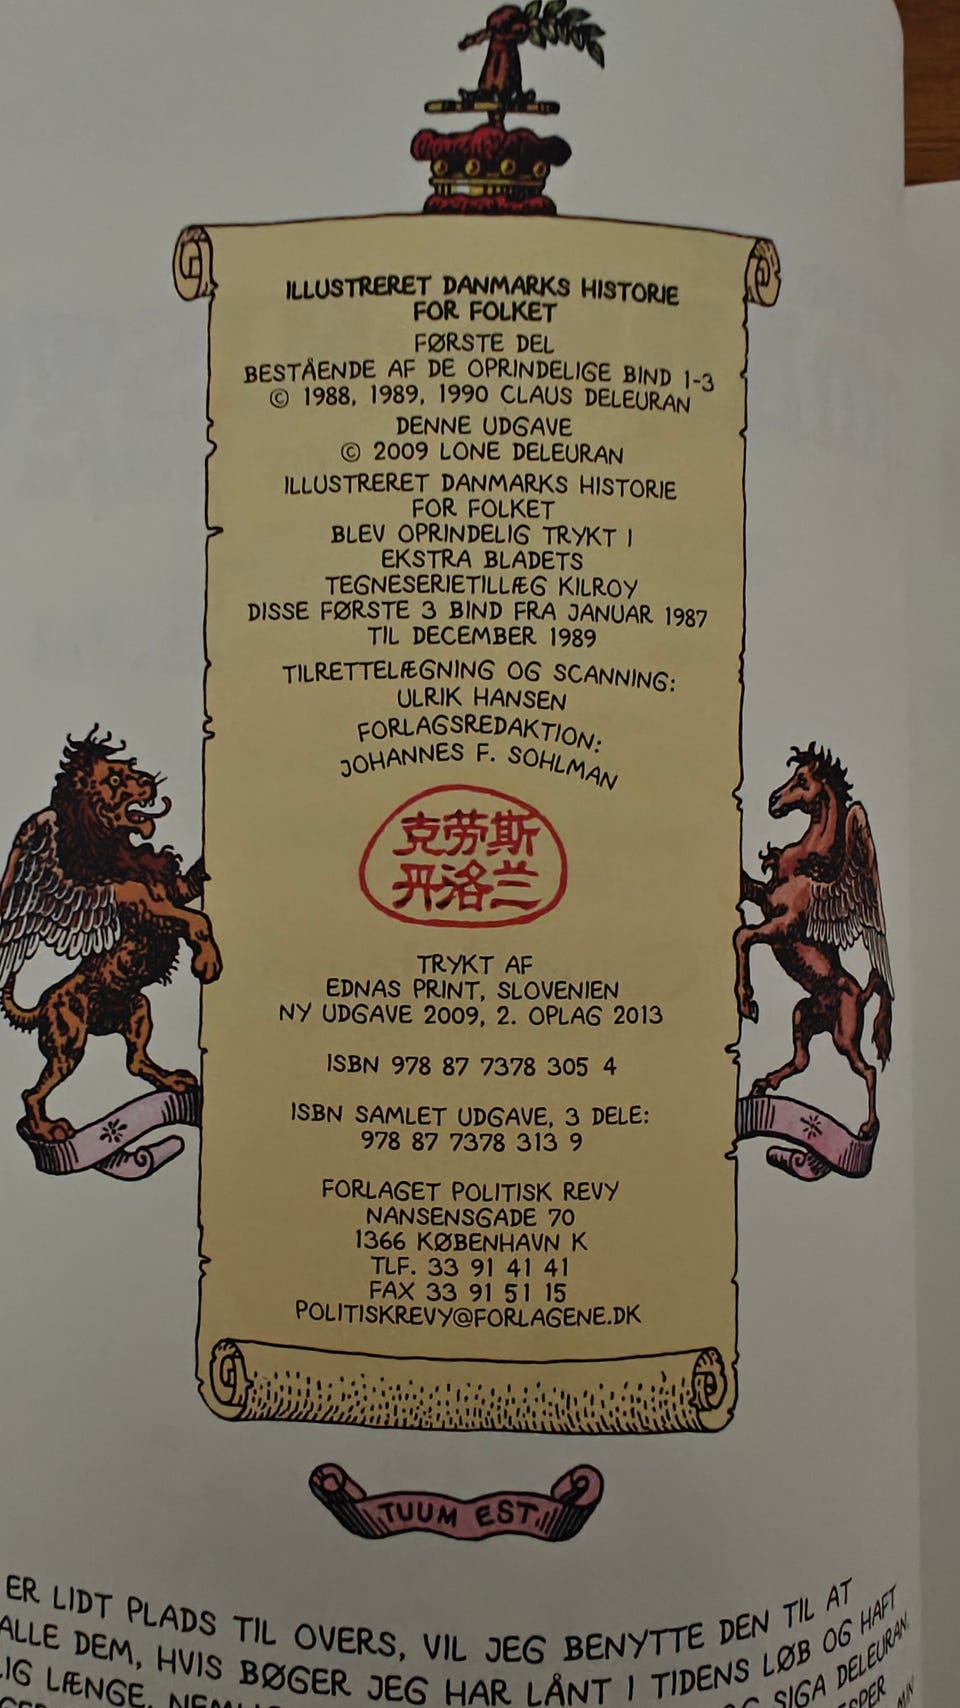 ILLUSTRERET DANMARKS HISTORIE
FOR FOLKET
FØRSTE DEL
BESTÅENDE AF DE OPRINDELIGE BIND 1-3
© 1988, 1989, 1990 CLAUS DELEURAN
DENNE UDGAVE
© 2009 LONE DELEURAN
ILLUSTRERET DANMARKS HISTORIE
FOR FOLKET
BLEV OPRINDELIG TRYKT I
EKSTRA BLADETS
TEGNESERIETILLÆG KILROY
DISSE FØRSTE 3 BIND FRA JANUAR 1987
TIL DECEMBER 1989
TILRETTELÆGNING OG SCANNING:
ULRIK HANSEN
FORLAGSREDAKTION:
JOHANNES F. SOHLMAN
克劳斯
丹洛兰
TRYKT AF
EDNAS PRINT, SLOVENIEN
NY UDGAVE 2009, 2. OPLAG 2013
ISBN 978 87 7378 305 4
ISBN SAMLET UDGAVE, 3 DELE:
978 87 7378 313 9
FORLAGET POLITISK REVY
NANSENSGADE 70
1366 KØBENHAVN K
TLF. 33 91 41 41
FAX 33 91 51 15
POLITISKREVY@FORLAGENE.DK
TUUM EST
ER LIDT PLADS TIL OVERS, VIL JEG BENYTTE DEN TIL AT
ALLE DEM, HVIS BØGER JEG HAR LÅNT I TIDENS LØB OG HAFT
LIG LÆNGE, SIGA DELEURAN,